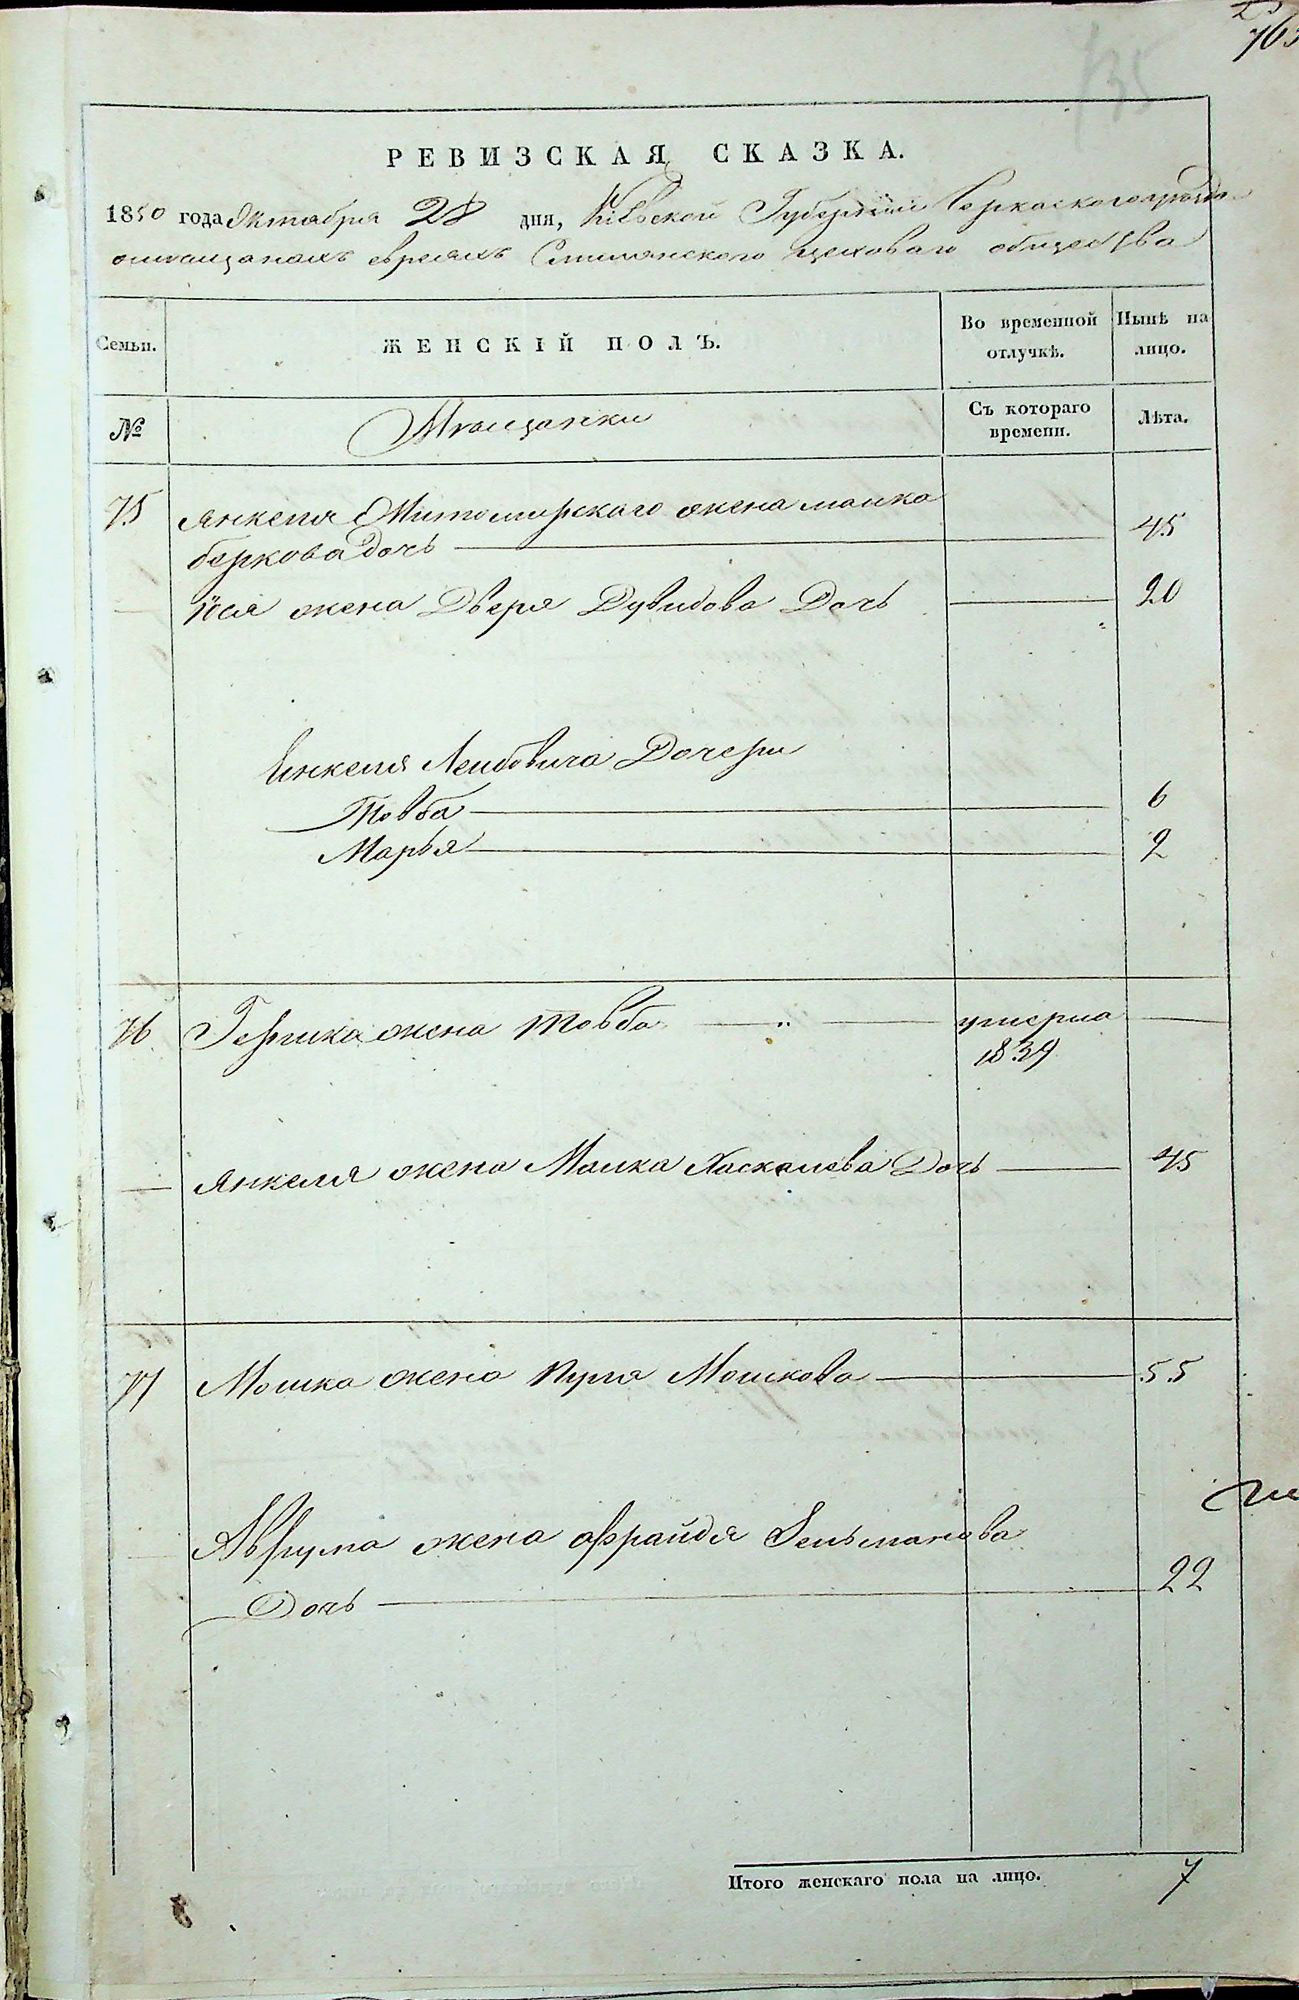 763
735
РЕВИЗСКАЯ СКАЗКА.
1850 года Октября 28 дня, Кіевской Губерніи Черкаского уѣзда
о мѣщанахъ евреяхъ Смѣлянского цеховаго общества
Семьи. ЖЕНСКІЙ ПОЛЪ. Во временной отлучкѣ. Нынѣ на лицо.
№ Мѣщанки Съ котораго времени. Лѣта.
75 Янкеля Житомирскаго жена малка
беркова дочь 45
Іося жена Двера Дувидова Дочь 20
Янкеля Лейбовича Дочери
Товба 6
Марья 2
76 Гершка жена Товба умерла
1839
Янкеля жена Малка Хаскелева Дочь 45
77 Мошка жена Пуля Мошкова 55
Аврума жена Фрайдя Зельманова
Дочь 22
Итого женскаго пола на лицо. 7